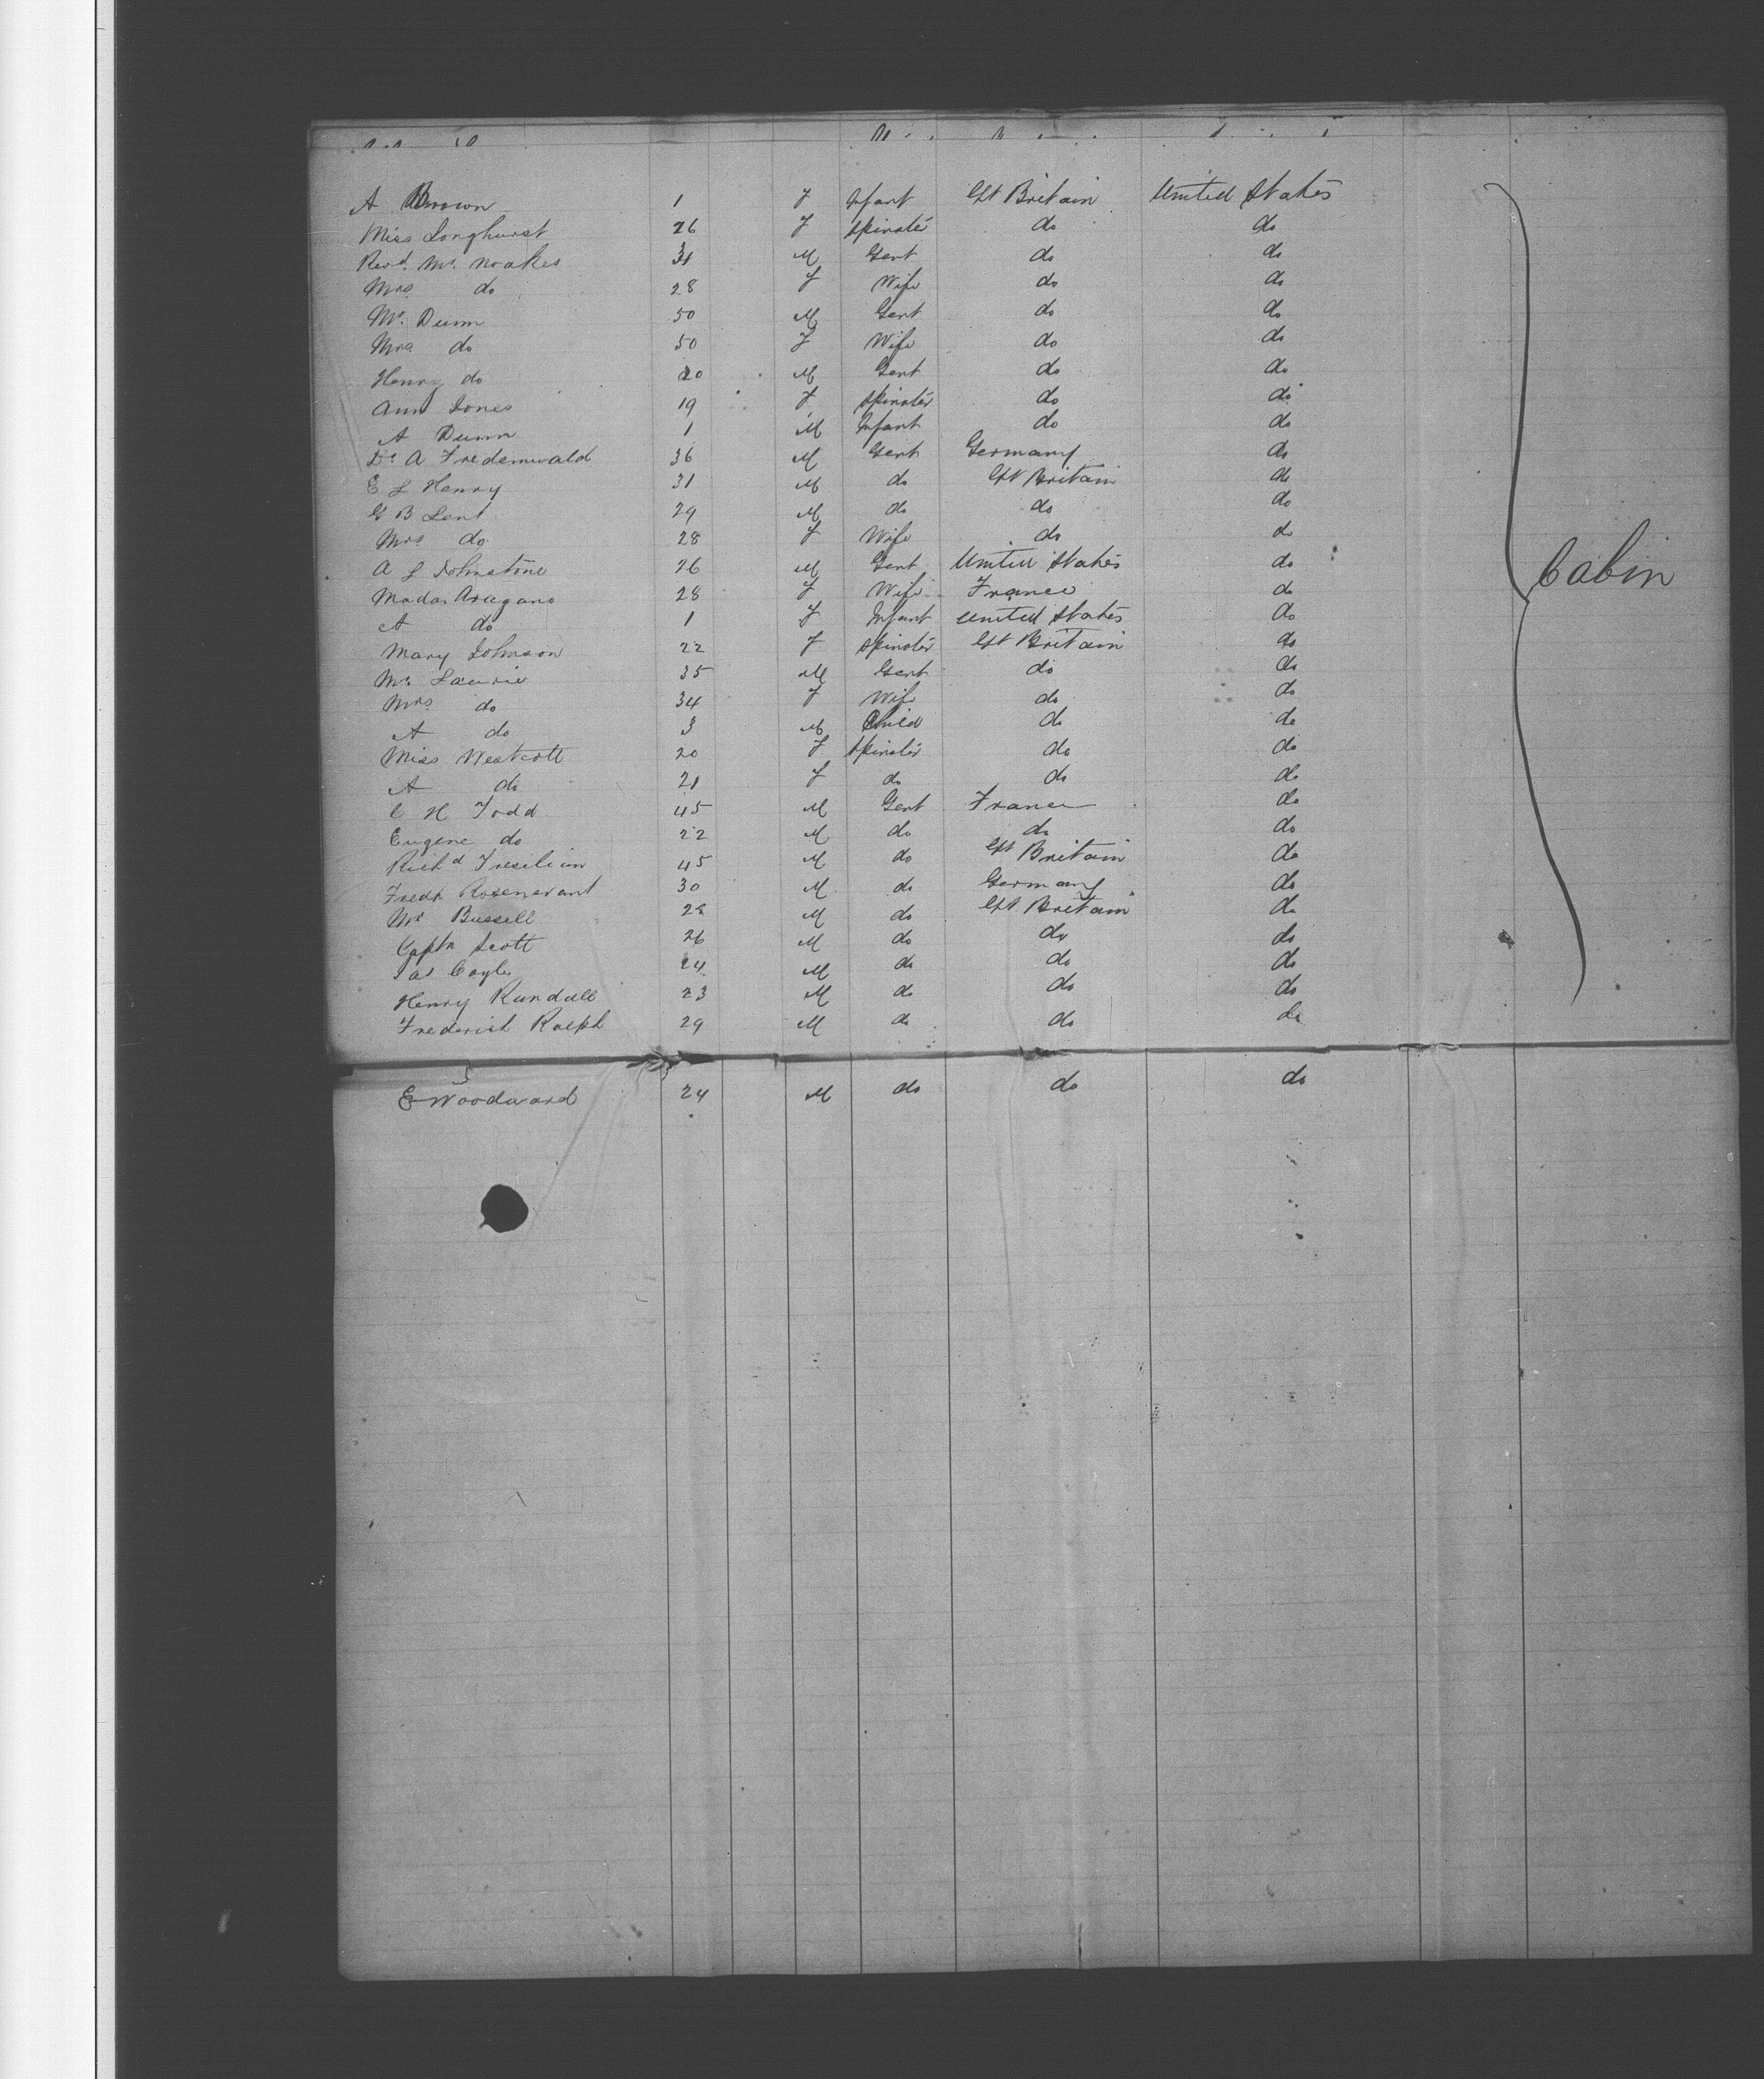 A Brown 1 F Infant Gt Britain United States
Miss Longhurst 26 F Spinster do do
Revd. Mr. Noakes 31 M Gent do do
Mrs do 28 F Wife do do
Mr. Dunn 50 M Gent do do
Mrs do 50 F Wife do do
Henry do 20 M Gent do do
Ann Jones 19 F Spinster do do
A Dunn 1 M Infant do do
Dr A Fredenwald 36 M Gent Germany do
E L Henry 31 M do Gt Britain do
G B Lent 29 M do do do
Mrs do 28 F Wife do do
A L Johnstone 26 M Gent United States do
Madam Aragano 28 F Wife France do
A do 1 F Infant United States do
Cabin
Mary Johnson 22 F Spinster Gt Britain do
Mr Laurie 35 M Gent do do
Mrs do 34 F Wife do do
A do 3 M Child do do
Miss Westcott 20 F Spinster do do
A do 21 F do do do
C H Todd 45 M Gent France do
Eugene do 22 M do do do
Richd Tresilian 45 M do Gt Britain do
Fredk 30 M do Germany do
Mr Bussell 28 M do Gt Britain do
Captn Scott 26 M do do do
Jas Coyle 24 M do do do
Henry Rundall 23 M do do do
Frederick Ralph 29 M do do do
E Woodward 24 M do do do